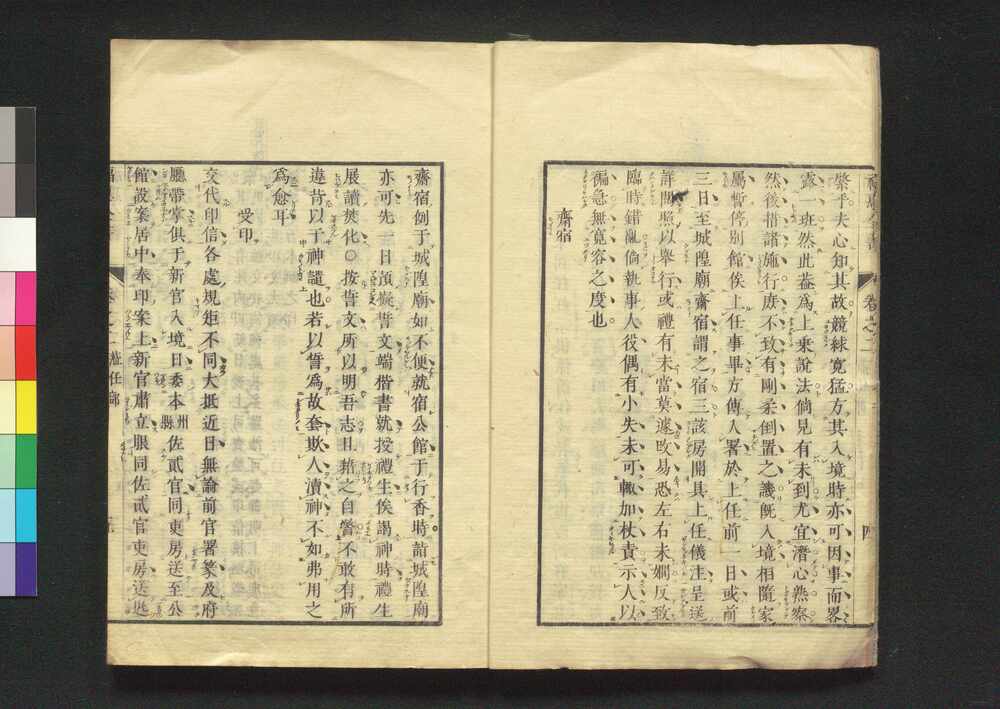 福惠全書 卷之二 四
繁乎夫心知其故競絿寬猛方其入境時亦可因事而畧
露一班然此葢爲上乘說法倘見有未到尤宜潛心熟察
然後措諸施行庶不致有剛柔倒置之譏旣入境相隨家
屬暫停別館俟上任事畢方傳入署於上任前一日或前
三日至城隍廟齋宿謂之宿三該房開具上任儀注呈送
詳閱照以舉行或禮有未當莫遽改易恐左右未嫺反致
臨時錯亂倘執事人役偶有小失未可輒加杖責示人以
褊急無寬容之度也
齋宿
齋宿例于城隍廟如不便就宿公館于行香時詣城隍廟
亦可先一日預擬誓文端楷書就授禮生俟謁神時禮生
展讀焚化○按誓文所以明吾志且藉之自警不敢有所
違背以干神譴也若以誓爲故套欺人瀆神不如弗用之
爲愈耳
受印
交代印信各處規矩不同大抵近日無論前官署篆及府
廳帶掌俱于新官入境日委本州縣佐貳官同吏房送至公
館設案居中奉印案上新官肅立眼同佐貳官吏房送
蒞任部